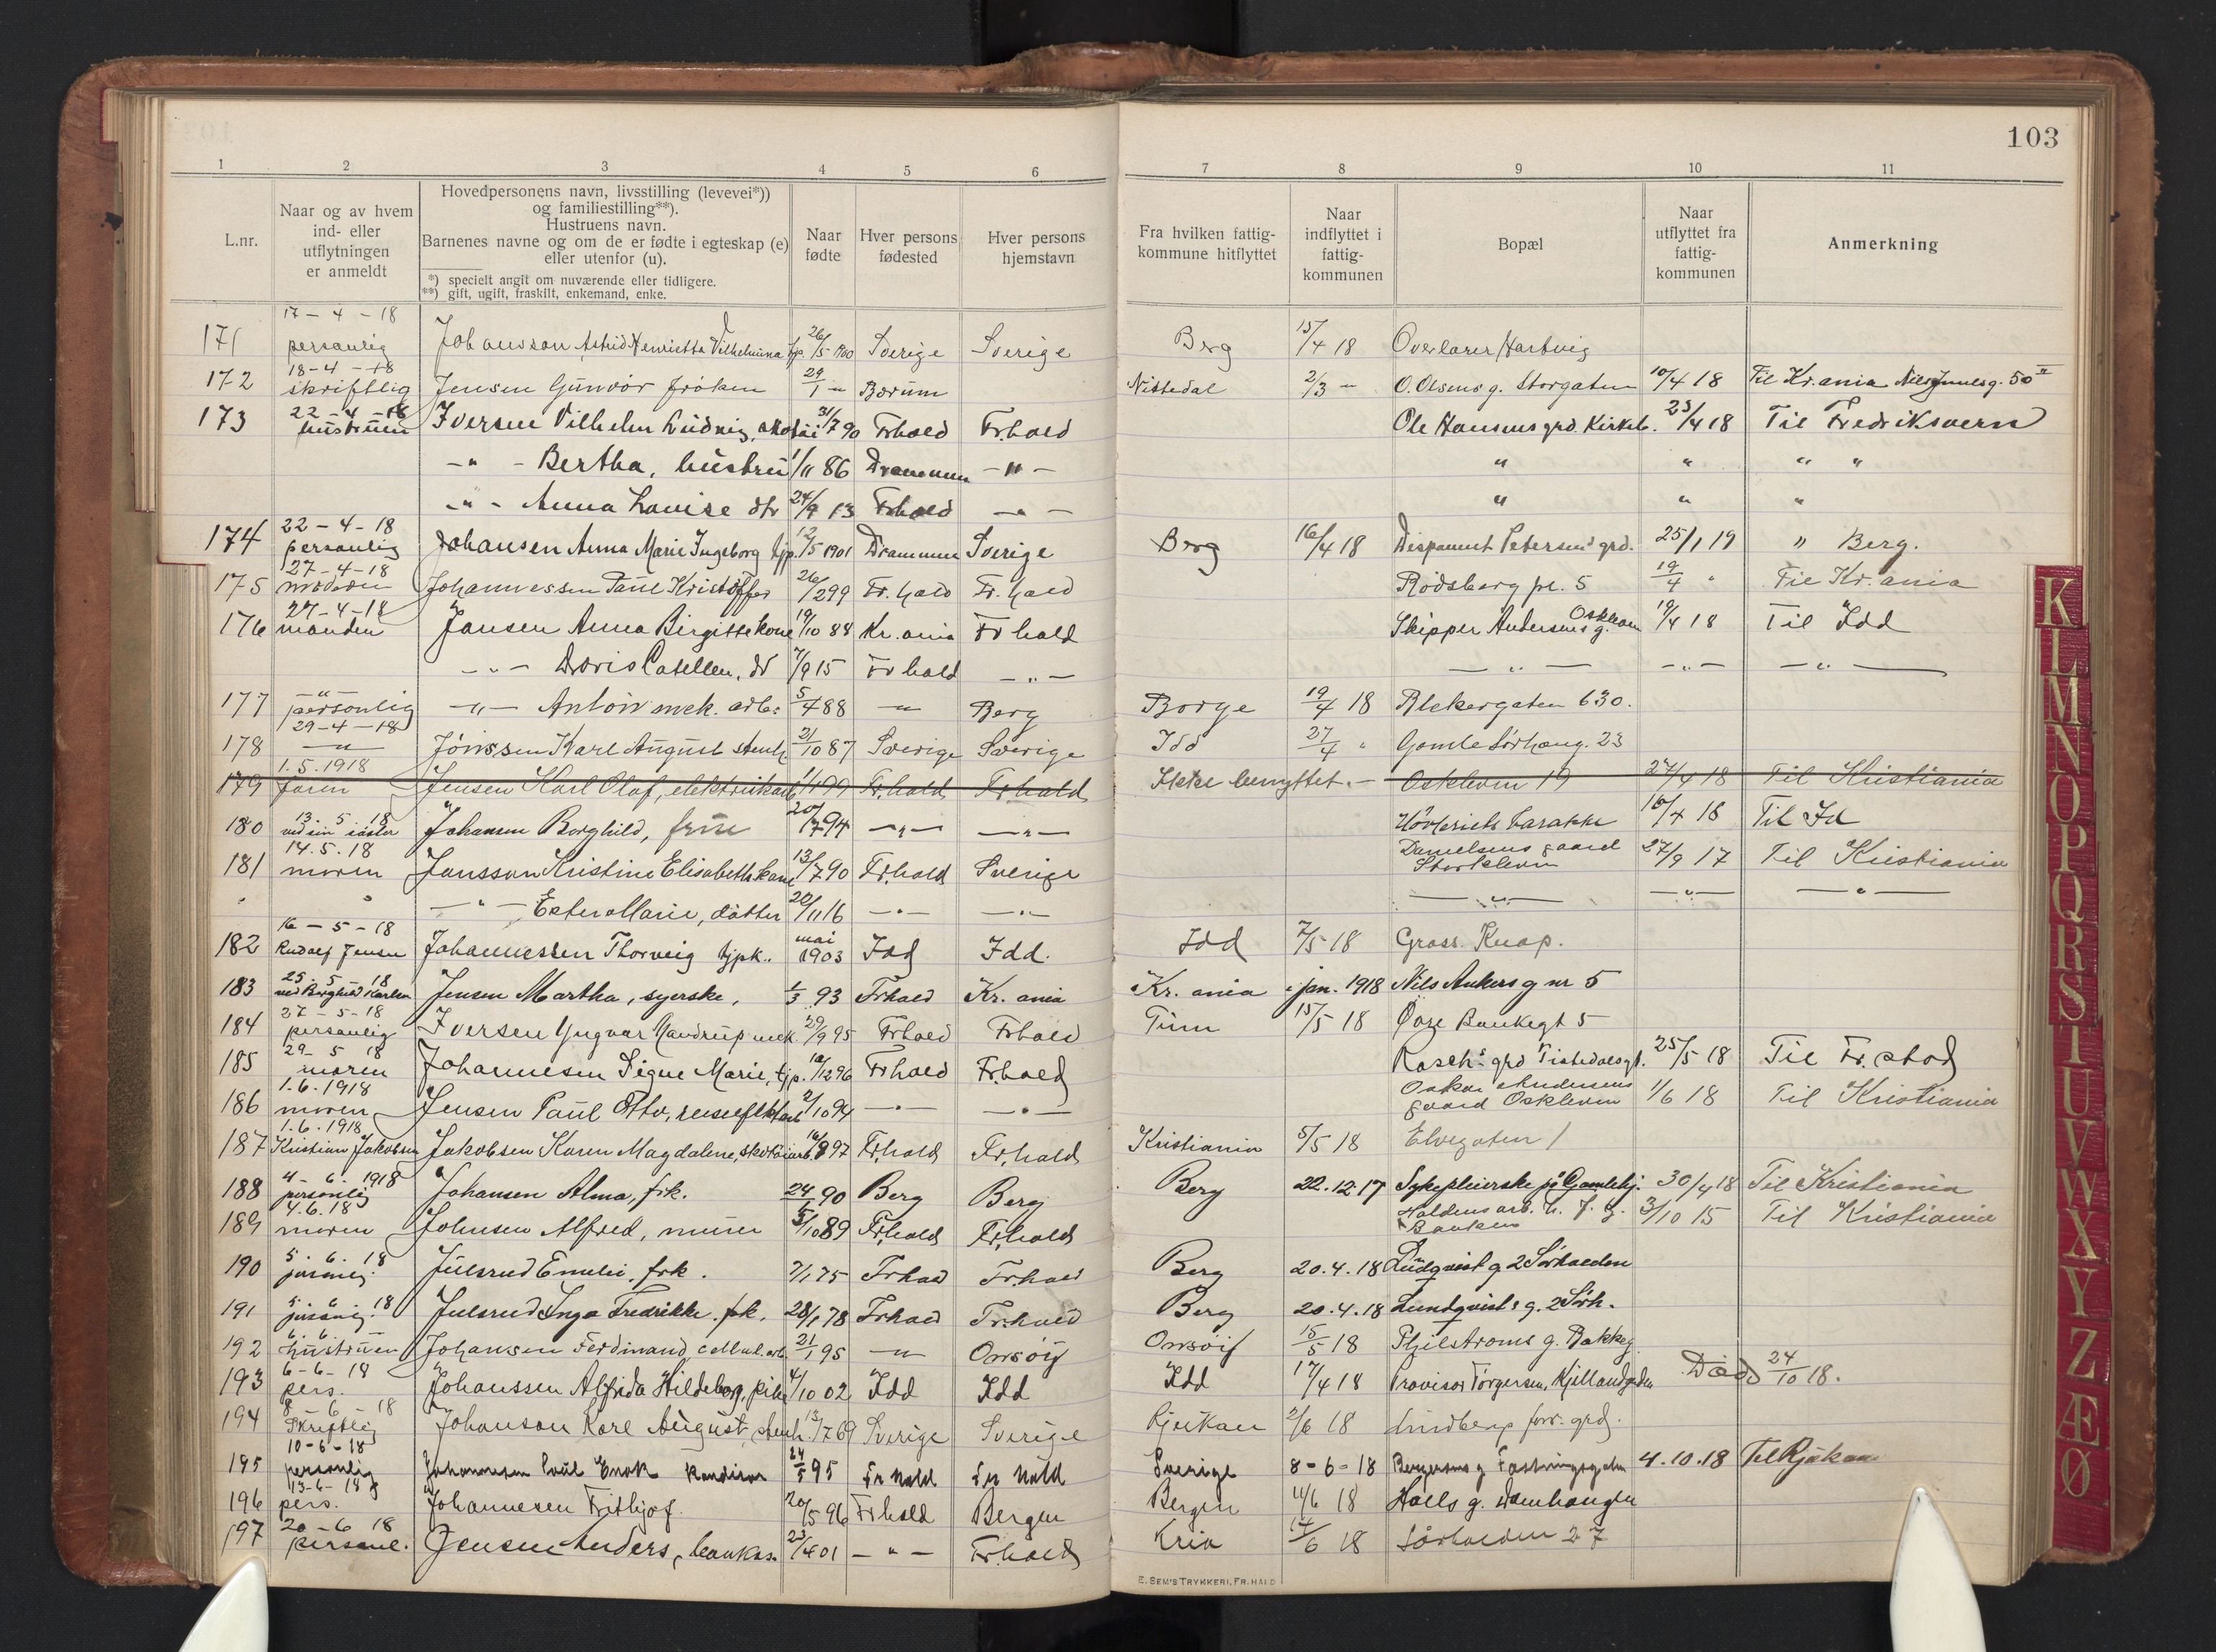 103
1 2 3 4 5 6 7 8 9 10 11
L.nr.
Naar og av hvem
ind- eller
utflytningen
er anmeldt
Hovedpersonens navn, livsstilling (levevei*))
og familiestilling**).
Hustruens navn.
Barnenes navne og om de er fødte i egteskap (e)
eller utenfor (u).
*) specielt angit om nuværende eller tidligere.
**) gift, ugift, fraskilt, enkemand, enke.
Naar
fødte
Hver persons
fødested
Hver persons
hjemstavn
Fra hvilken fattig-
kommune hitflyttet
Naar
indflyttet i
fattig-
kommunen
Bopæl
Naar
utflyttet fra
fattig-
kommunen
Anmerkning
17-4-18
171 personlig Johansson Astrid Henrietta Vilhelmina tjp. 26/5 1900 Sverige Sverige Berg 15/4 18 Overlærer Hartvig
18-4-18
172 skriftlig Jensen Gunvor frøken 29/1 " Bærum Nittedal 2/3 " O. Olsens g. Storgaten 10/4 18 Til Kr.ania Niels Juuelsg. 50 II
22-4-18
173 hustruen Iversen Vilhelm Ludvig, 31/7 90 Frhald Fr.hald Ole Hansens grd. Kirkeb. 23/4 18 Til Fredriksværn
-"- Bertha, hustru 1/11 86 Drammen -"- " " " "
-"- Anna Lovise dtr 24/9 13 Frhald -"- " " "
22-4-18
174 personlig Johansen Anna Marie Ingeborg tjp. 12/5 1901 Drammen Sverige Berg 16/4 18 Petersens grd. 25/1 19 " Berg.
27-4-18
175 moderen Johannessen Paul Kristoffer 26/2 99 Fr.hald Fr.hald Rødsberg pl. 5 19/4 " Til Kr.ania
27-4-18
176 manden Jansen Anna Birgitte kone 19/10 88 Kr.ania Fr hald Skipper Andersens g. Oskleven 19/4 18 Til Idd
-"- Doris Catellen, dt 7/9 15 Fr hald -"- -"- -"- -"-
-"-
177 personlig -"- Anton mek. arb: 5/4 88 -"- Berg Borge 19/4 18 Blekergaten 630.
29-4-18
178 -"- Jonssen Karl August stenh. 21/10 87 Sverige Sverige Idd 27/4 " Gamle Sørhaug. 23
1.5.1918
179 faren Jensen Karl Olaf, elektrikarb. 1/1 99 Fr.hald Fr.hald Ikke benyttet.- Oskleven 19 27/4 18 Til Kristiania
13.5.18
180 ved sin søster Johansen Borghild, frue 20/7 94 -"- -"- barakke 16/4 18 Til Id
14.5.18
181 moren Jansson Kristine Elisabeth kone 13/7 90 Fr.hald Sverige Danielsens gaard
Storkleven 27/9 17 Til Kristiania
" " -"- Ester Marie, datter 20/11 16 -"- -"- -"- -"- -"-
16-5-18
182 Rudolf Jensen Johannessen Thorveig tjpk. mai 1903 Idd Idd. Idd 7/5 18 Gross. Knap.
25-5-18
183 ved Borghild Karlsen Jensen Martha, syerske, 1/3 93 Frhald Kr.ania Kr.ania i jan. 1918 Nils Ankers g nr 5
27-5-18
184 personlig Iversen Yngvar mek. 29/9 95 Frhald Frhald Tinn 15/5 18 Øvre Bankegt 5
29-5-18
185 moren Johannesen Signe Marie, tjp. 18/12 96 Frhald Frhald Rasch's grd Tistedalsgt. 25/5 18 Til Fr.stad
1.6.1918
186 moren Jensen Paul Otto, 2/10 94 -"- -"- Oskar Andersens
gaard Oskleven 1/6 18 Til Kristiania
1.6.1918
187 Kristian Jakobsen Jakobsen Karen Magdalene, skotøiarb. 16/8 97 Fr.hald Fr.hald Kristiania 5/5 18 Elvegaten 1
4-6-1918
188 personlig Johansen Alma, frk. 24/5 90 Berg Berg Berg 22.12.17 Sykepleierske på Gamlehj. 30/4 18 Til Kristiania
4.6.18
189 moren Johnsen Alfred, murer 3/10 89 Fr.hald Fr.hald Haldens arb. h. f. g.
Banken 3/10 15 Til Kristiania
5.6.18
190 personlig Julsrud Emilie. frk. 7/1 75 Fr.hald Fr.hald Berg 20.4.18 Lundqvist g 2 Sørhalden
5.6.18
191 personlig Julsrud Inga Fredrikke. frk. 28/1 78 Frhald Fr.hald Berg 20.4.18 Lundqvists g. 2 Sørh.
6.6
192 hustruen Johansen Ferdinand cellul.arb 21/1 95 -"- Onsøy Onsøy 15/5 18 g. Bakkeg
6-6-18
193 pers. Johanssen Alfrida Hildeborg, pike 4/10 02 Idd Idd Idd 17/4 18 Provisor Torgersen, Kjellandgaden Død 24/10 18.
8-6-18
194 Skriftlig Johanson Karl August, stenh. 13/7 69 Sverige Sverige Rjukan 2/6 18 Lindberg forr. grd.
10-6-18
195 personlig Johannesen Paul Enok Konditor 24/5 95 Fr hald Fr hald Sverige 8-6-18 Bergersens g Fæstningsgaten 4.10.18 Til Rjukan
13-6-18
196 pers. Johannesen Fritjof. 20/5 96 Fr hald Bergen Bergen 11/6 18 Halls g. Damhaugen
20-6-18
197 personl. Jensen Anders, bankas. 23/4 01 -"- Fr.hald Kria 14/6 18 Sørhalden 27
E. SEM'S TRYKKERI, FR.HALD
K
L
M
N
O
P
Q
R
S
T
U
V
W
X
Y
Z
Æ
Ø